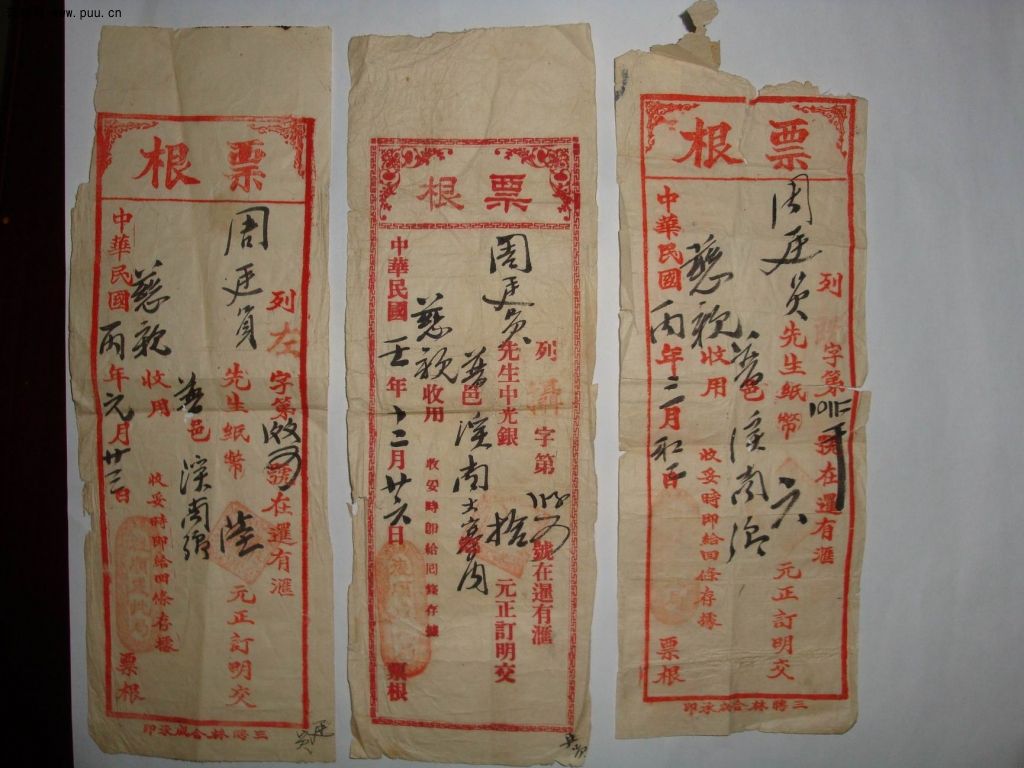 www.puu.cn
票根
列左字第 號在暹有滙
周廷員先生紙幣陸元正訂明交
普邑溪南
慈親收用
收妥時即給回條存據
中華民國丙年元月廿三日
票根
三聘林合成承印
票根
列 字第 號在暹有滙
周廷員先生中光銀拾元正訂明交
普邑溪南 內
慈親收用
收妥時即給囘條存據
中華民國壬年十二月廿六日
票根
票根
列 字第 號在暹有滙
周廷員先生紙幣六元正訂明交
普邑溪南
慈親收用
收妥時即給回條存據
中華民國丙年二月初
票根
三聘林合成承印